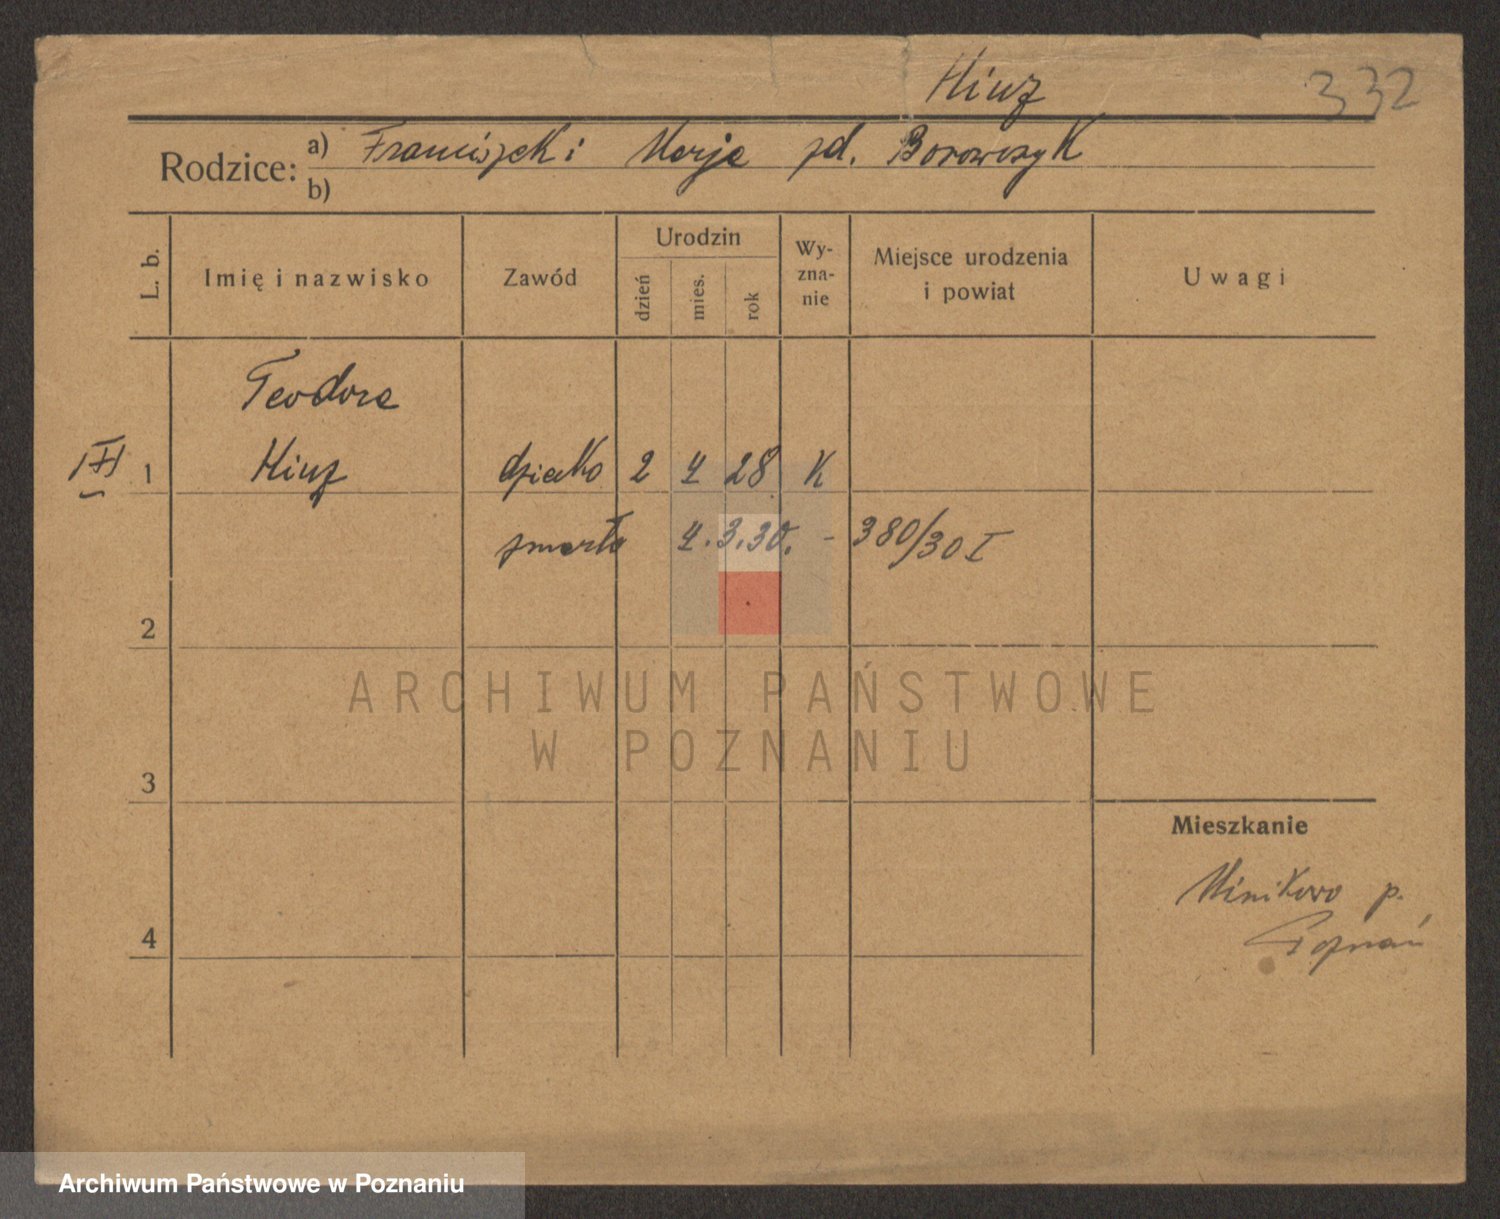 Hinz 332
Rodzice: a) Franciszek i Marja zd. Borowczyk
b)
L. b.
Imię i nazwisko
Zawód
Urodzin
dzień
mies.
rok
Wy-
zna-
nie
Miejsce urodzenia
i powiat
Uwagi
Teodora
1 Hinz dziecko 2 4 28 K
zmarła 4.3.30. - 380/30 I
2
ARCHIWUM PAŃSTWOWE
W POZNANIU
3
Mieszkanie
Minikowo p.
Poznań
4
Archiwum Państwowe w Poznaniu